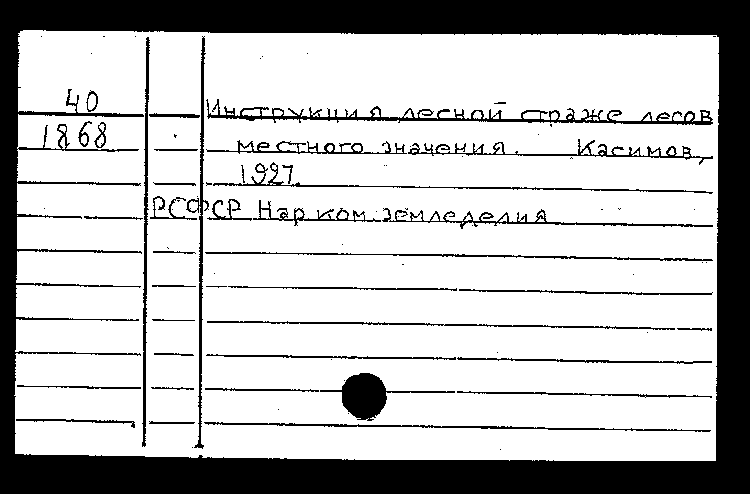 40 Инструкция лесной страже лесов
1868 местного значения. Касимов,
1927.
РСФСР Нар ком земледелия